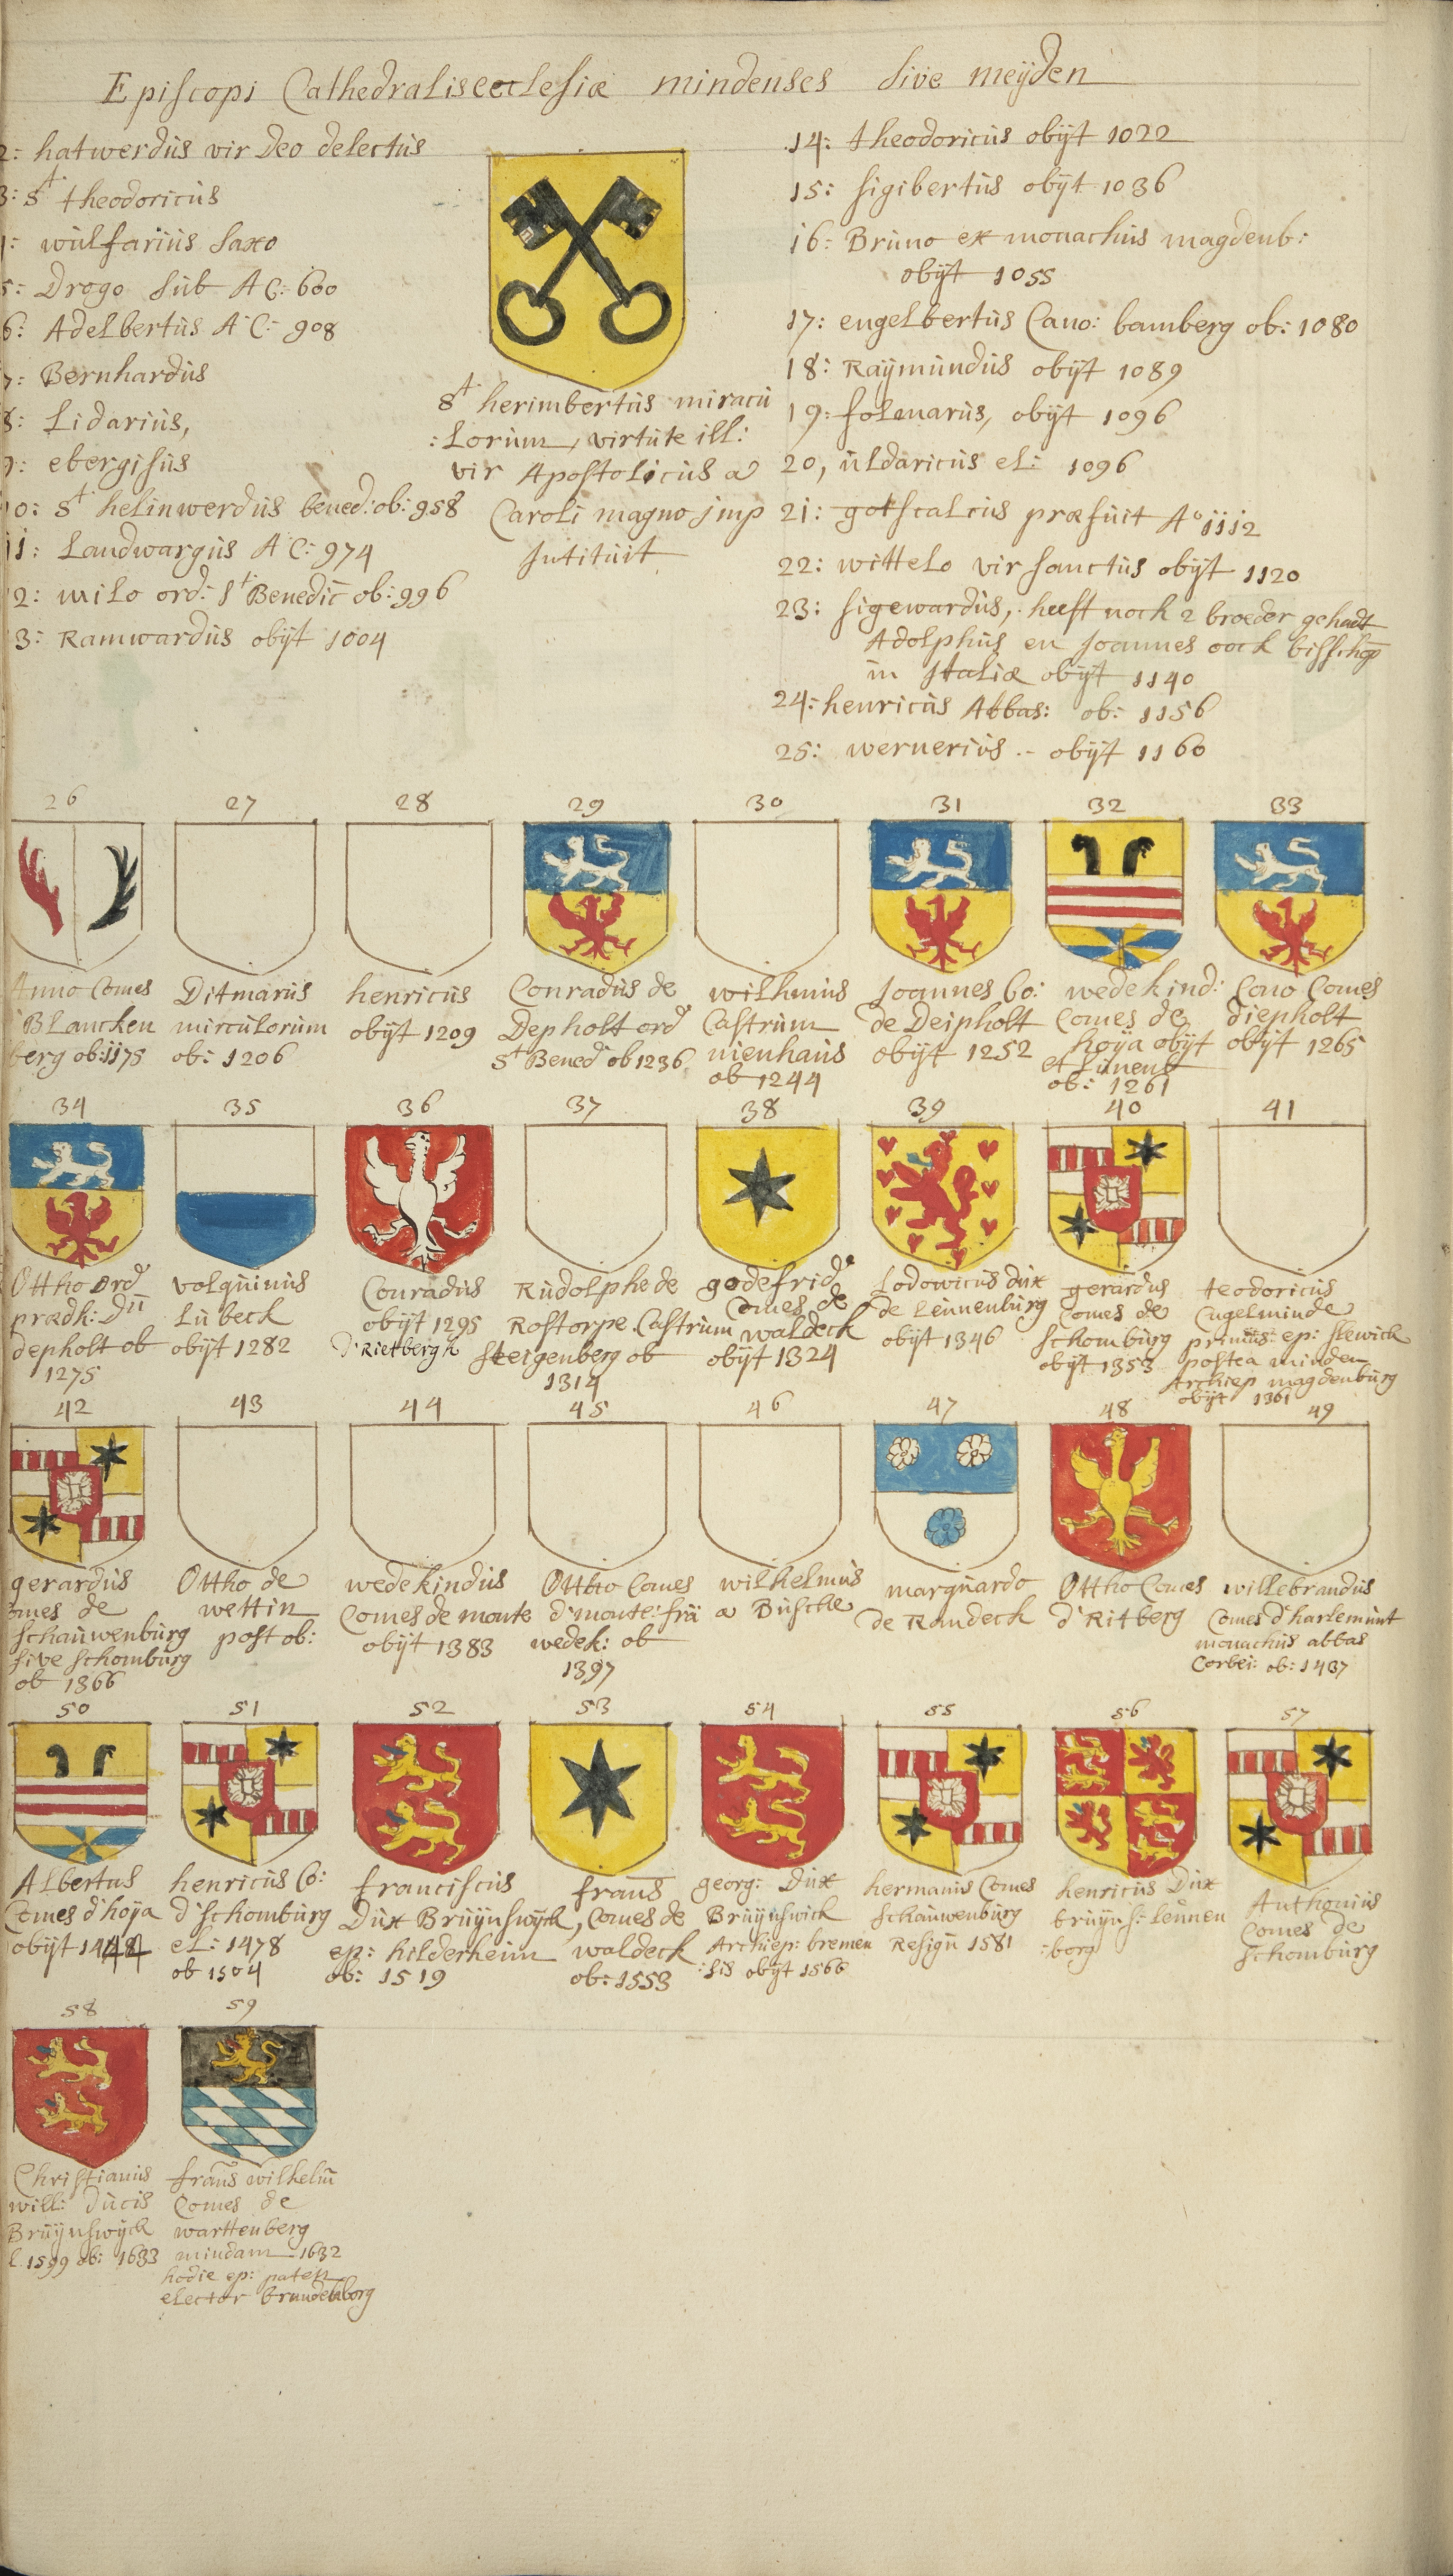 Episcopi Cathedralis ecclesiæ mindenses sive meijden
2: hatwerdùs vir Deo delectùs
3: St theodoricùs
4: wùlfariùs saxo
5: Drogo sùb A C: 600
6: Adelbertùs A C: 908
7: Bernhardùs
8: Lidariùs,
9: ebergisùs
10: St helinwerdùs bened: ob: 958
11: Landwargùs A C: 974
12: milo ord: St Benedic ob: 996
13: Ramwardùs obijt 1004
St herimbertùs miracù
:lorùm, virtùte ill:
vir Apostolicùs a
Caroli magno jmp
Intitùit
14: theodoricùs obijt 1022
15: sigibertùs obijt 1036
16: Brùno ex monachùs magdenb:
obijt 1055
17: engelbertùs Cano: bamberg ob: 1080
18: Raijmùndùs obijt 1089
19: folmarùs, obijt 1096
20, ùldaricùs el: 1096
21: gotscalcùs præfùit Ao 1112
22: wittelo vir sanctùs obijt 1120
23: sigewardùs, heeft noch 2 broeder gehadt
Adolphùs en Joannes oock bisschop
in Italiæ obijt 1140
24: henricùs Abbas: ob: 1156
25: wernerius .- obijt 1160
26 27 28 29 30 31 32 33
Anno Comes
Blancken
berg ob: 1175
Ditmarùs
mircùlorùm
ob: 1206
henricùs
obijt 1209
Conradùs de
Depholt ord
St Bened ob 1236
wilhmùs
Castrùm
nienhaùs
ob 1244
Joannes Co:
de Deipholt
obijt 1252
wedekind:
Comes de
hoija obijt
et Lùnenb
ob: 1261
Cono Comes
diepholt
obijt 1265
34 35 36 37 38 39 40 41
Ottho ord
prædk: Dn
depholt ob
1275
volqùinùs
Lùbeck
obijt 1282
Conradùs
obijt 1295
d'Rietbergh
Rùdolphe de
Rostorpe Castrùm
Steigenberg ob
1314
godefrid
Comes de
waldeck
obijt 1324
Lodowicùs dùx
de Leùnenbùrg
obijt 1346
gerardùs
Comes de
schombùrg
obijt 1353
teodoricùs
Cùgelminde
primùs ep: slewick
postea minden
Archiep magdenbùrg
obijt 1361
42 43 44 45 46 47 48 49
gerardùs
omes de
schaùwenbùrg
sive schombùrg
ob 1366
Ottho de
wettin
post ob:
wedekindùs
Comes de monte
obijt 1383
Ottho Comes
d'monte: frà
wedek: ob
1397
wilhelmùs
a Bùsche
marqùardo
de Randeck
Ottho Comes
d'Ritberg
willebrandùs
Comes d'harlemùnt
monachùs abbas
Corbei: ob: 1437
50 51 52 53 54 55 56 57
Albertus
Comes d'hoija
obijt 1474
henricùs Co:
d'schombùrg
el: 1478
ob 1504
franciscùs
Dùx Brùijnswijck,
ep: hilderheim
ob: 1519
frans
Comes de
waldeck
ob: 1553
georg: Dùx
Brùijnswick
Archiep: bremen
:sis obijt 1566
hermanùs Comes
schaùwenbùrg
Resign 1581
henricùs Dùx
brùijns: Leùnen
:borg
Anthoniùs
Comes de
schombùrg
58 59
Christianùs
will: dùcis
Brùijnswijck
el 1599 ob: 1633
frans wilhelm
Comes de
warttenberg
mindam 1632
hodie ep: paten
elector brandeborg